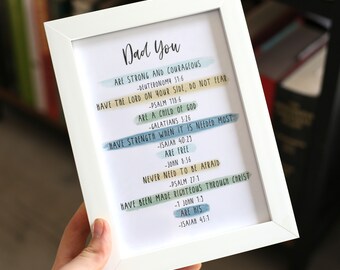 Dad You
ARE STRONG AND COURAGEOUS
-DEUTERONOMY 31:6
HAVE THE LORD ON YOUR SIDE, DO NOT FEAR
-PSALM 118:6
ARE A CHILD OF GOD
-GALATIANS 3:26
HAVE STRENGTH WHEN IT IS NEEDED MOST
-ISAIAH 40:29
ARE FREE
-JOHN 8:36
NEVER NEED TO BE AFRAID
-PSALM 27:1
HAVE BEEN MADE RIGHTEOUS THROUGH CHRIST
-1 JOHN 1:9
ARE HIS
-ISAIAH 43:1